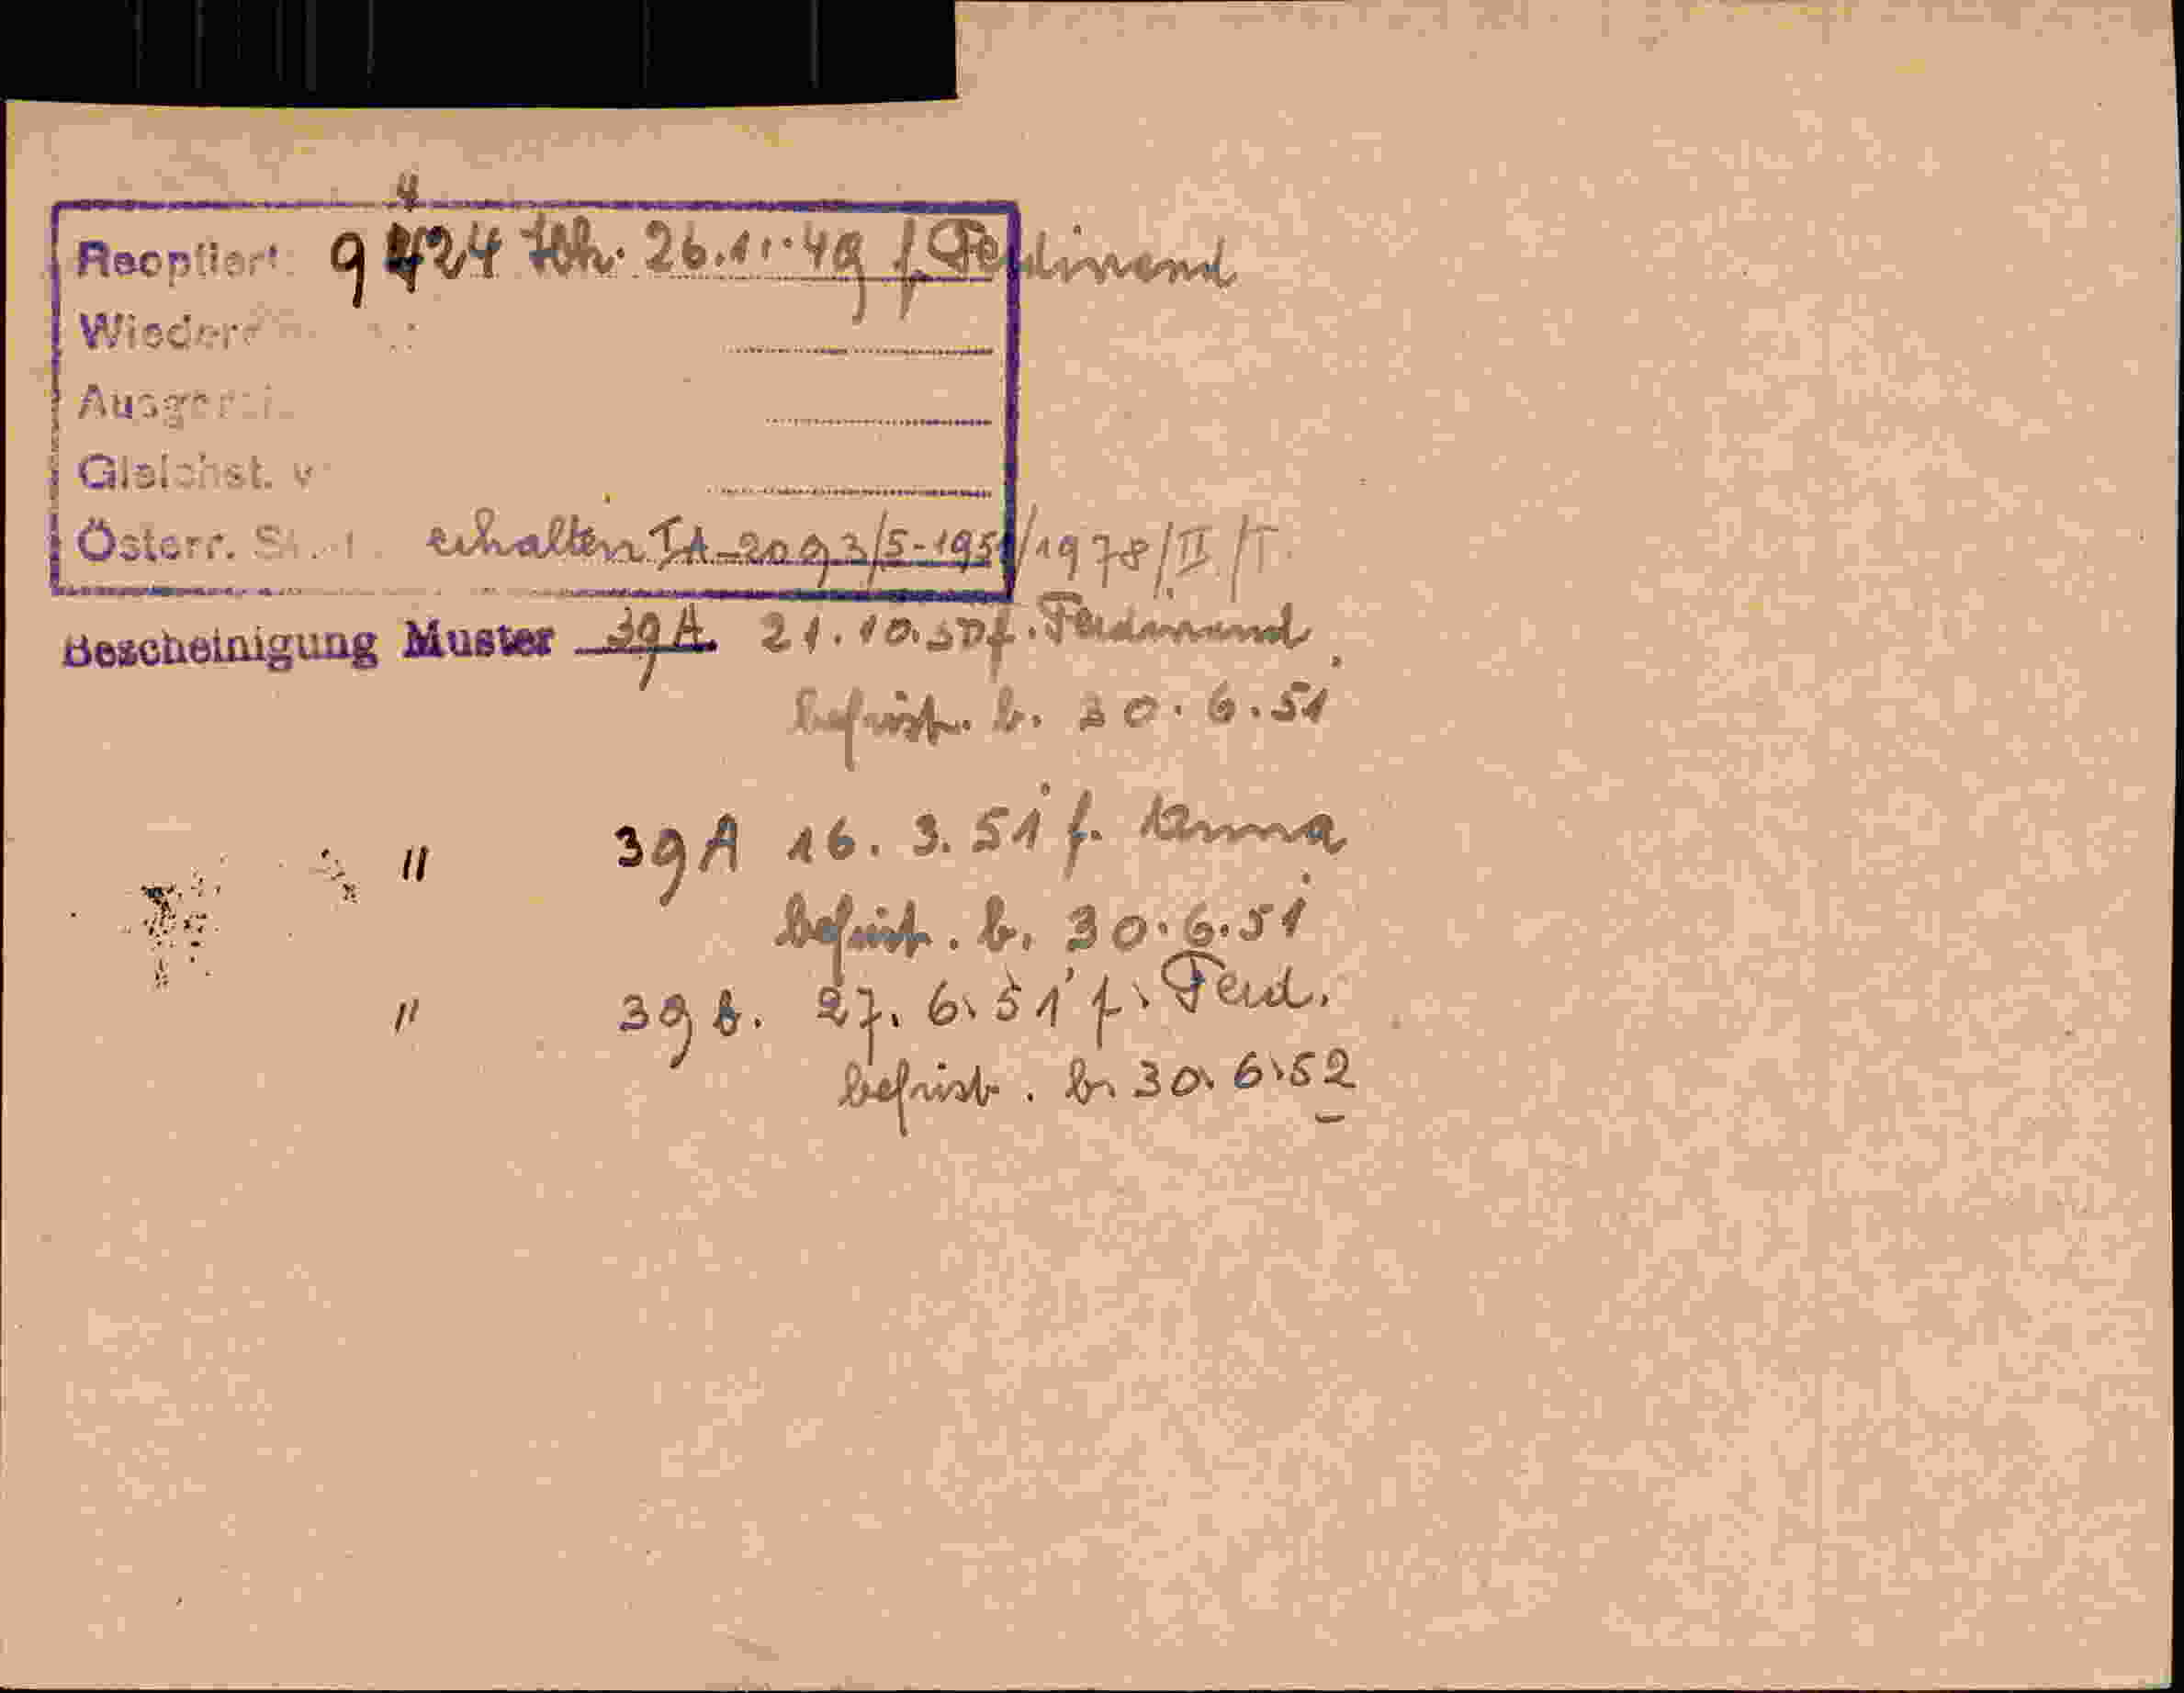 Reoptiert: 9424 26.11.49 f. Ferdinand
Wieder
Ausger
Gleichst. v
Österr. St. erhalten IA-2093/5-1951/1978/II/I
Bescheinigung Muster 39A. 21.10.50 f. Ferdinand
befrist. b. 30.6.51
" 39A 16.3.51 f. Anna
befrist. b. 30.6.51
" 39 b. 27.6.51 f. Ferd.
befrist. b. 30.6.52